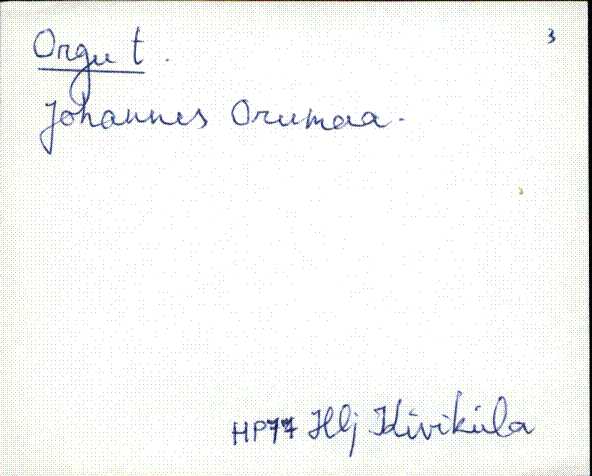 Orgu t. 3
Johannes Orumaa.
HP77 Hlj Kiviküla